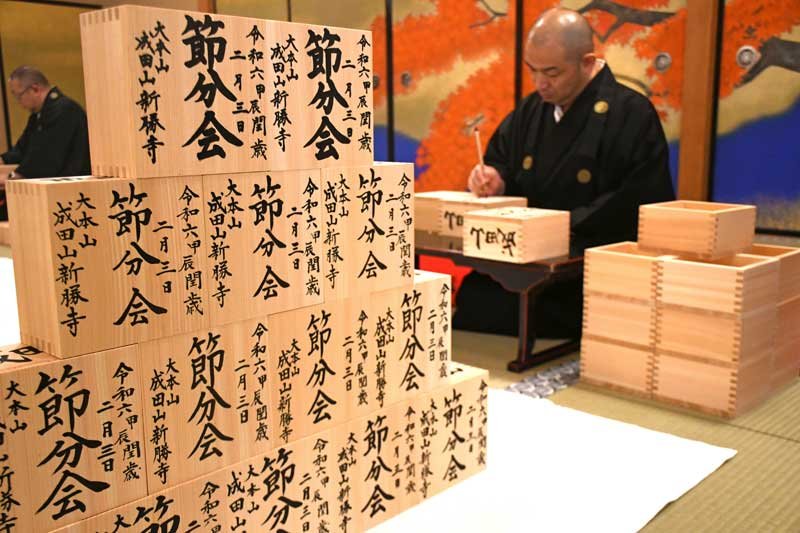 令和六甲辰閏歳
二月三日
節分会
大本山
成田山新勝寺
令和六甲辰閏歳
二月三日
節分会
大本山
成田山新勝寺
令和六甲辰閏歳
二月三日
節分会
大本山
成田山新勝寺
令和六甲辰閏歳
二月三日
節分会
大本山
成田山新勝寺
令和六甲辰閏歳
二月三日
節分会
大本山
成田山新勝寺
令和六甲辰閏歳
二月三日
節分会
大本山
成田山新勝寺
令和六甲辰閏歳
二月三日
節分会
大本山
成田山新勝寺
令和六甲辰閏歳
二月三日
節分会
大本山
成田山新勝寺
令和六甲辰閏歳
二月三日
節分会
大本山
令和六甲辰閏歳
二月三日
節分会
大本山
成田山新勝寺
令和六甲辰閏歳
二月三日
節分会
大本山
成田山新勝寺
令和六甲辰
二月三日
節分会
大本山
成田山
令和六
節
大本